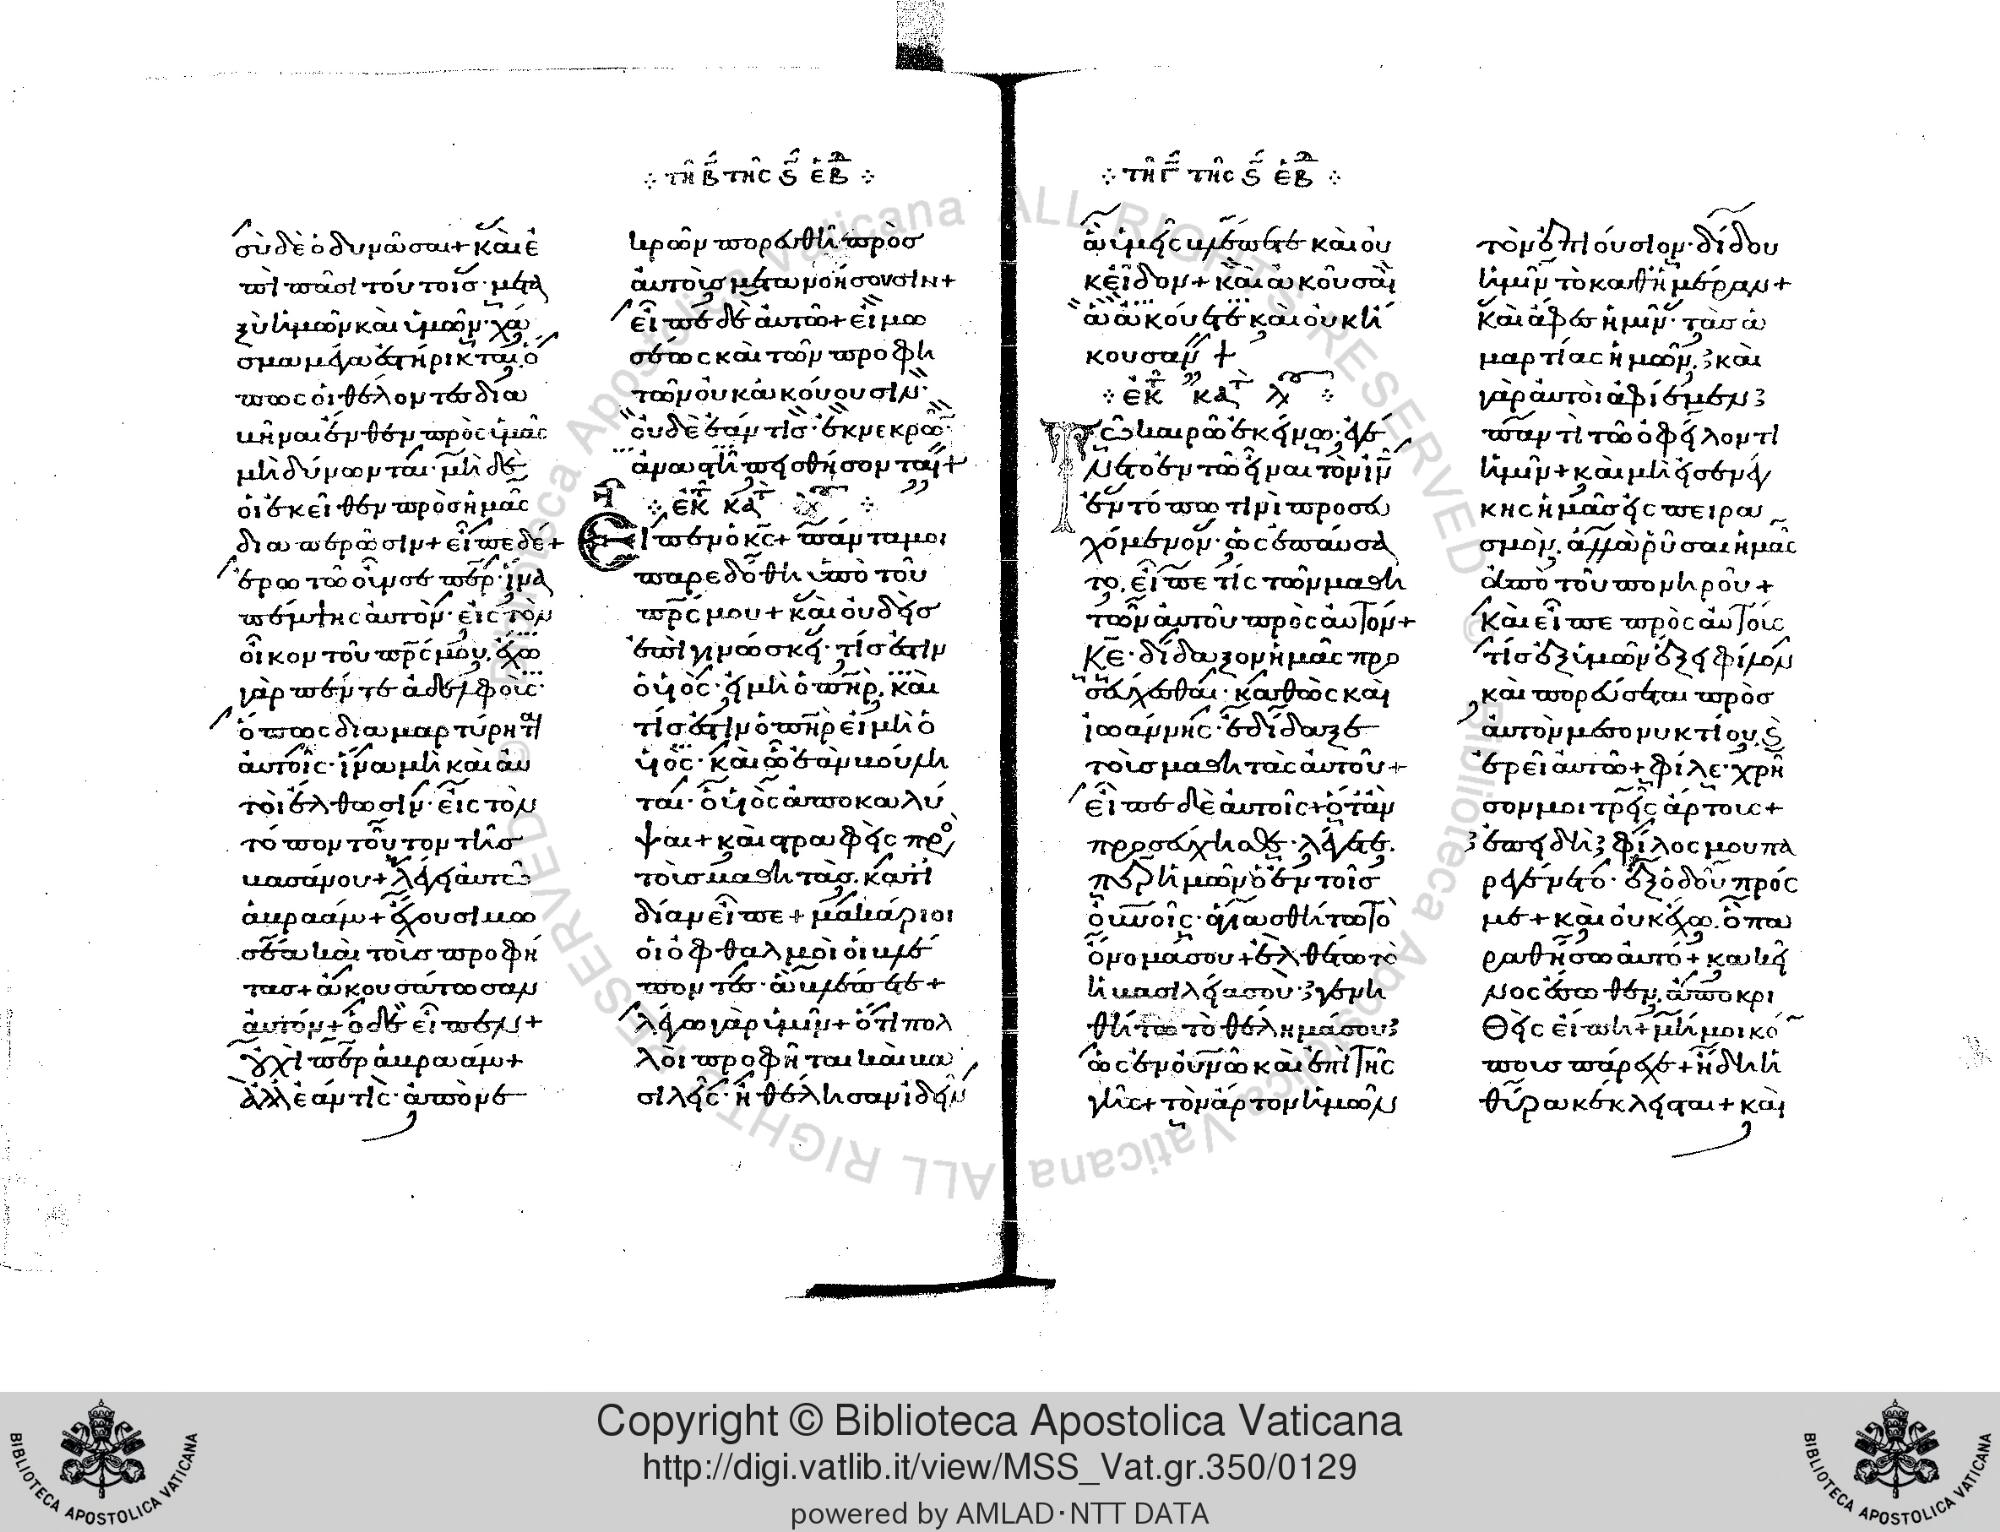 τῇ β τῆς ς ἑβ
σὺ δὲ ὀδυνᾶσαι + καὶ ἐ
πὶ πᾶσι τούτοις · μετα
ξὺ ἡμῶν καὶ ὑμῶν · χά
σμα μέγα ἐστήρικται · ὅ
πως οἱ θέλοντες δια
βῆναι ἔνθεν πρὸς ὑμᾶς
μὴ δύνωνται · μὴ δὲ
οἱ ἐκεῖθεν πρὸς ἡμᾶς
διαπερῶσιν + εἶπε δέ +
ἐρωτῶ οὖν σε περ · ἵνα
πέμψης αὐτὸν · εἰς τὸν
οἶκον τοῦ πρς μου · ἔχω
γὰρ πέντε ἀδελφούς ·
ὅπως διαμαρτύρηται
αὐτοῖς · ἵνα μὴ καὶ αὐ
τοὶ ἔλθωσιν · εἰς τὸν
τόπον τοῦτον τῆς
βασάνου + λέγει αὐτῶ
ἀβραάμ + ἔχουσι μω
σέα καὶ τοὺς προφή
τας + ἀκουσάτωσαν
αὐτῶν + ὁ δὲ εἶπεν +
οὐχὶ περ ἀβραάμ +
ἀλλ' ἐάν τις · ἀπὸ νε
κρῶν πορευθῆ πρὸς
αὐτοὺς μετανοήσουσιν +
εἶπε δὲ αὐτῶ + εἰ μω
σέως καὶ τῶν προφη
τῶν οὐκ ἀκούουσιν ·
οὐδὲ ἐάν τις · ἐκ νεκρῶν ·
ἀναστῆ πεισθήσονται +
ἐκ κατ
Εἶπεν ὁ κς + πάντα μοι
παρεδόθη ὑπὸ τοῦ
πρς μου + καὶ οὐδεὶς
ἐπιγινώσκει · τίς ἐστιν
ὁ υἱός · εἰ μὴ ὁ πηρ · καὶ
τίς ἐστιν ὁ πηρ εἰ μὴ ὁ
υἱός · καὶ ὧ ἐὰν βούλη
ται · ὁ υἱὸς ἀποκαλύ
ψαι + καὶ στραφεὶς προ
τοὺς μαθητὰς · κατ' ἰ
δίαν εἶπε + μακάριοι
οἱ ὀφθαλμοὶ οἱ βλέ
ποντες · ἃ βλέπετε +
λέγω γὰρ ὑμῖν + ὅτι πολ
λοὶ προφῆται καὶ βα
σιλεῖς · ἠθέλησαν ἰδεῖν
τῇ γ τῆς ς ἑβ
ἃ ὑμεῖς βλέπετε καὶ οὐ
κ εἶδον + καὶ ἀκοῦσαι
ἃ ἀκούετε καὶ οὐκ ἤ
κουσαν +
ἐκ κατ λ
Τῶ καιρῶ ἐκείνω · ἐγέ
νετο ἐν τῶ εἶναι τὸν ἰν
ἐν τόπω τινὶ προσευ
χόμενον · ὡς ἐπαύσα
το, εἶπέ τις τῶν μαθη
τῶν αὐτοῦ πρὸς αὐτόν +
κε · δίδαξον ἡμᾶς προ
σεύχεσθαι · καθὼς καὶ
ἰωάννης · ἐδίδαξε
τοὺς μαθητὰς αὐτοῦ +
εἶπε δὲ αὐτοῖς + ὅταν
προσεύχησθε · λέγετε.
περ ἡμῶν ὁ ἐν τοῖς
οὐνοῖς · ἁγιασθήτω τὸ
ὄνομά σου + ἐλθέτω
ἡ βασιλεία σου · γενη
θήτω τὸ θέλημά σου
ὡς ἐν οὐνῶ καὶ ἐπὶ τῆς
γῆς + τὸν ἄρτον ἡμῶν
τὸν ἐπιούσιον · δίδου
ἡμῖν τὸ καθημέραν +
καὶ ἄφες ἡμῖν · τὰς ἁ
μαρτίας ἡμῶν, καὶ
γὰρ αὐτοὶ ἀφίεμεν
παντὶ τῶ ὀφείλοντι
ἡμῖν + καὶ μὴ εἰσενέγ
κης ἡμᾶς εἰς πειρα
σμὸν, ἀλλὰ ῥῦσαι ἡμᾶς
ἀπὸ τοῦ πονηροῦ +
Καὶ εἶπε πρὸς αὐτούς
τίς ἐξ ὑμῶν ἕξει φίλον
καὶ πορεύσεται πρὸς
αὐτὸν μεσονυκτίου, καὶ
ἐρεῖ αὐτῶ + φίλε · χρῆ
σόν μοι τρεῖς ἄρτους +
ἐπειδὴ φίλος μου πα
ρεγένετο · ἐξ ὁδοῦ πρός
με + καὶ οὐκ ἔχω, ὃ πα
ραθήσω αὐτῶ + κακεῖ
νος ἔσωθεν, ἀποκρι
θεὶς εἴπη + μή μοι κό
πους πάρεχε + ἤδη ἡ
θύρα κέκλεισται + καὶ
Copyright © Biblioteca Apostolica Vaticana
http://digi.vatlib.it/view/MSS_Vat.gr.350/0129
powered by AMLAD·NTT DATA
BIBLIOTECA APOSTOLICA VATICANA
BIBLIOTECA APOSTOLICA VATICANA
© Biblioteca Apostolica Vaticana ALL RIGHTS RESERVED © Biblioteca Apostolica Vaticana ALL RIGHTS RESERVED